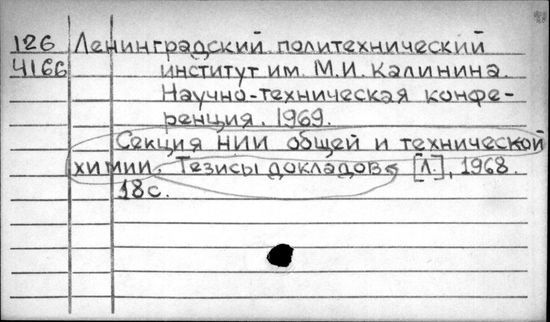 126 Ленинградский политехнический
4166 институт им. М.И. Калинина.
Научно-техническая конфе-
ренция. 1969.
Секция НИИ общей и технической
химии. Тезисы докладов [Л.], 1968.
18с.